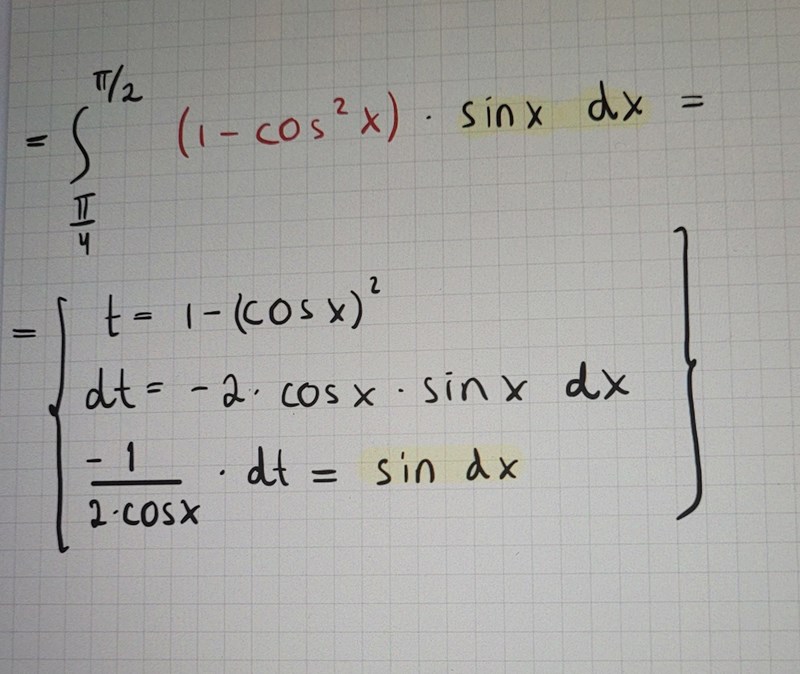 = ∫_{π/4}^{π/2} (1 - cos² x) · sin x dx =
= [ t = 1 - (cos x)²
dt = -2 · cos x · sin x dx
-1/(2·cos x) · dt = sin dx ]